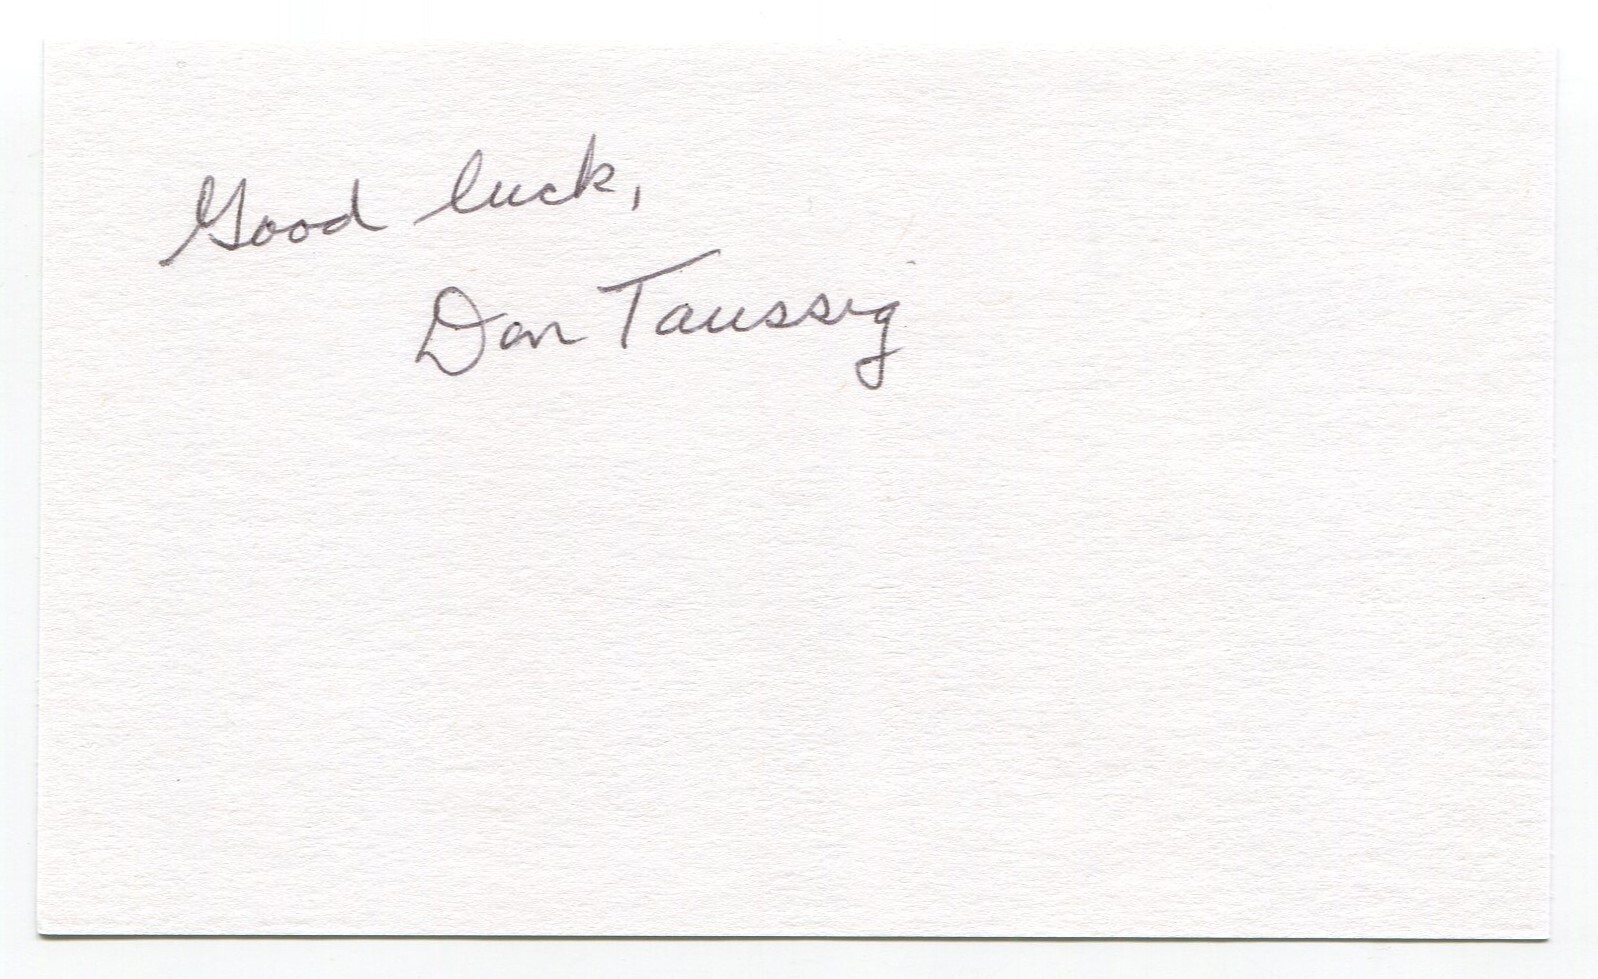 Good luck,
Don Taussig